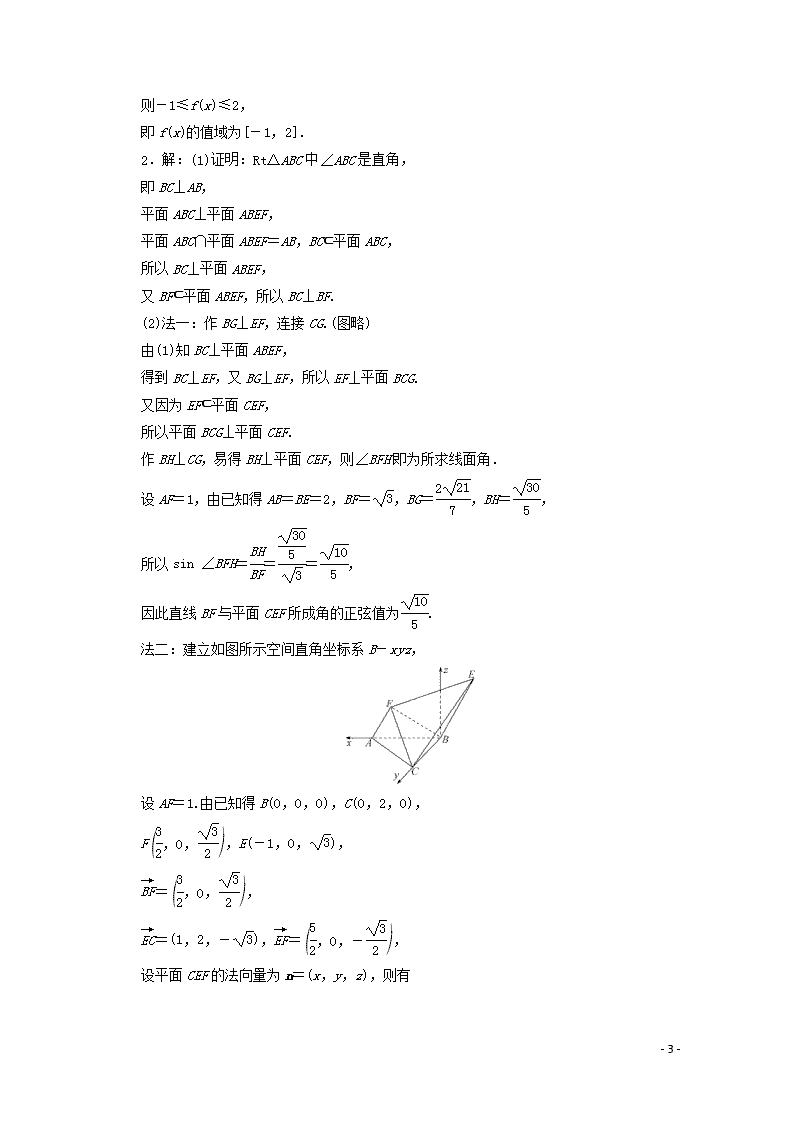 则－1≤f(x)≤2，
即 f(x)的值域为[－1，2].
2．解：(1)证明：Rt△ABC中∠ABC是直角，
即 BC⊥AB，
平面 ABC⊥平面 ABEF，
平面 ABC∩平面 ABEF＝AB，BC⊂平面 ABC，
所以 BC⊥平面 ABEF，
又 BF⊂平面 ABEF，所以 BC⊥BF.
(2)法一：作 BG⊥EF，连接 CG.(图略)
由(1)知 BC⊥平面 ABEF，
得到 BC⊥EF，又 BG⊥EF，所以 EF⊥平面 BCG.
又因为 EF⊂平面 CEF，
所以平面 BCG⊥平面 CEF.
作 BH⊥CG，易得 BH⊥平面 CEF，则∠BFH即为所求线面角．
设 AF＝1，由已知得 AB＝BE＝2，BF＝√3，BG＝2√21/7，BH＝√30/5，
所以 sin ∠BFH＝BH/BF＝(√30/5)/√3＝√10/5，
因此直线 BF与平面 CEF所成角的正弦值为√10/5.
法二：建立如图所示空间直角坐标系 B－xyz，
z
E
F
x
A
B
C
y
设 AF＝1.由已知得 B(0，0，0)，C(0，2，0)，
F(3/2，0，√3/2)，E(－1，0，√3)，
→BF＝(3/2，0，√3/2)，
→EC＝(1，2，－√3)，→EF＝(5/2，0，－√3/2)，
设平面 CEF的法向量为 n＝(x，y，z)，则有
- 3 -